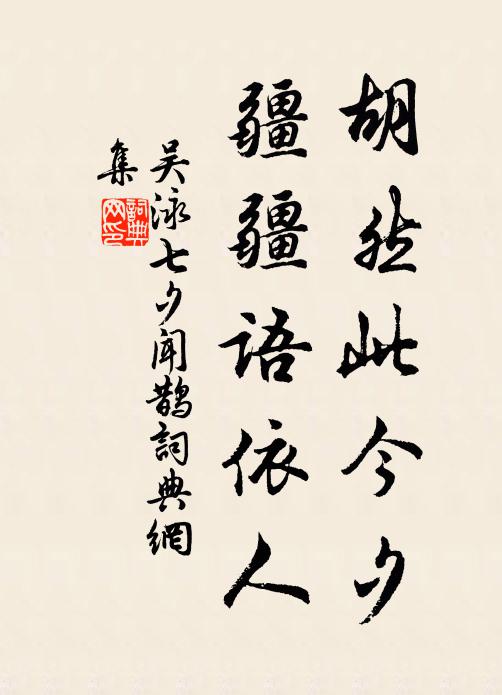 胡然此今夕
疆疆語依人
吴泳七夕闻鹊詞典網
集
詞典网印